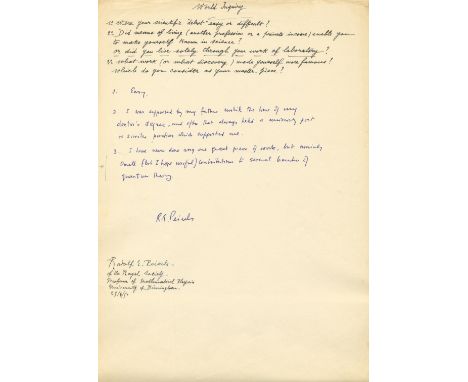 World Inquiry
1º Were your scientific "debut" easy or difficult?
2º Did means of living (another profession or a private income) enable you
to make yourself known in science?
or did you live solely through your work of laboratory?
3º What work (or what discovery) made yourself more famous?
Which do you consider as your master piece?
1. Easy.
2. I was supported by my father until the time of my
doctor's degree, and after that always held a university post
or similar position which supported me.
3. I have never done any one great piece of work, but merely
small (but I hope useful) contributions to several branches of
quantum theory.
R E Peierls
Rudolf E. Peierls
of the Royal Society
Professor of Mathematical Physics
University of Birmingham